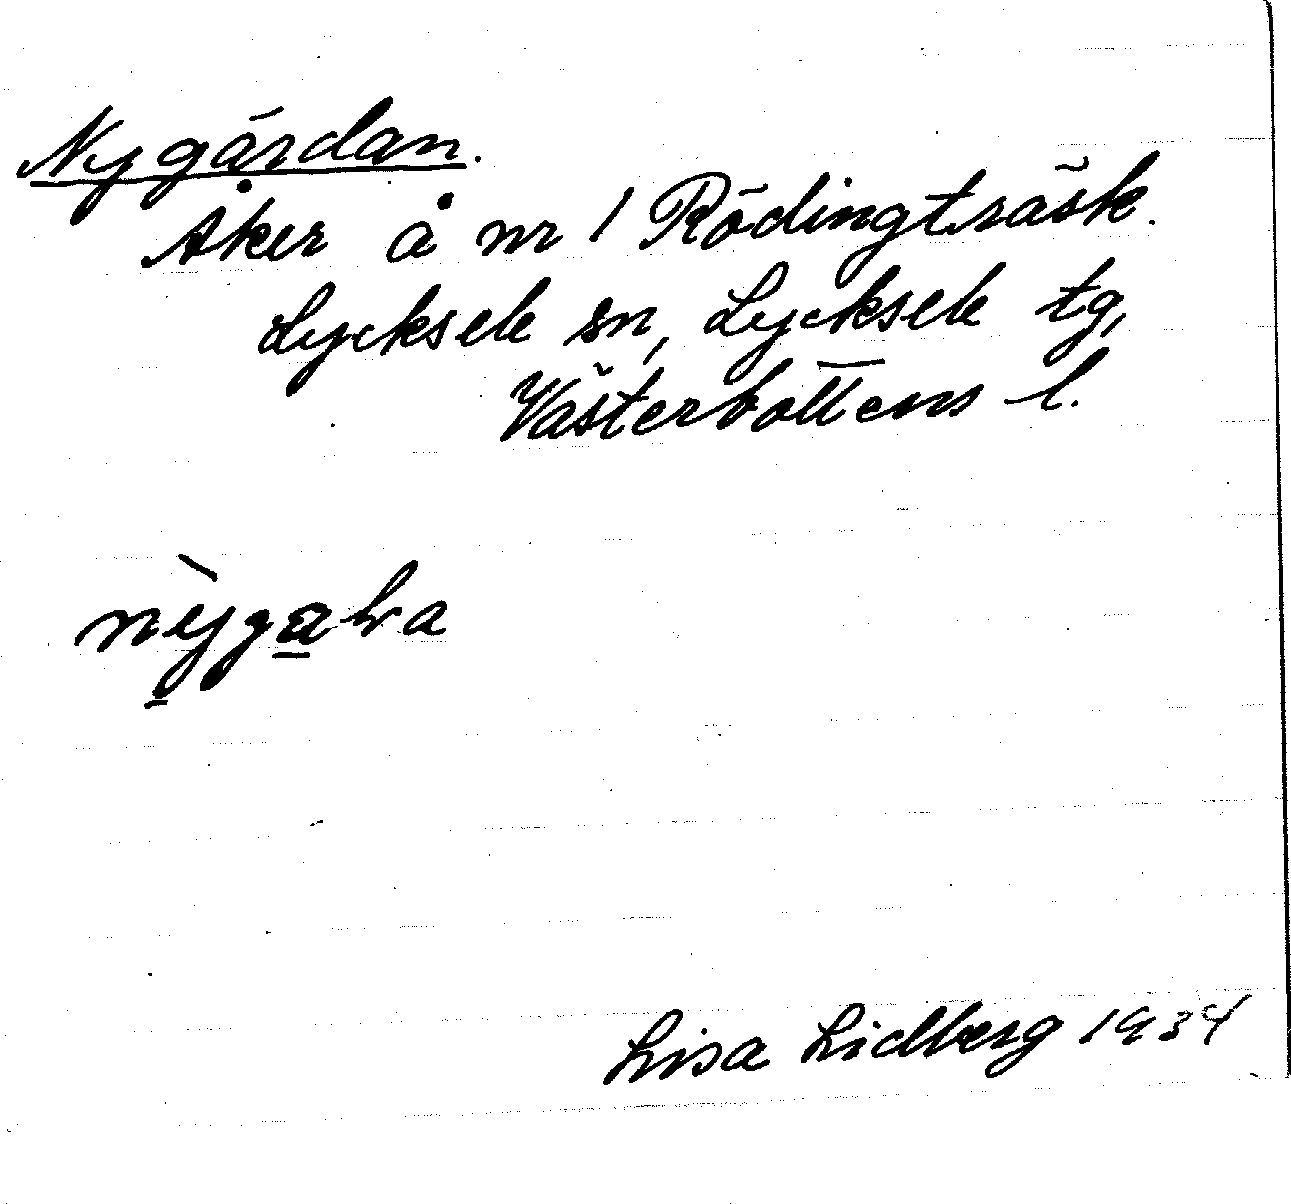 Nygårdan.
Åker å nr 1 Rödingträsk.
Lycksele sn, Lycksele tg,
Västerbottens l.
Lisa Lidberg 1934